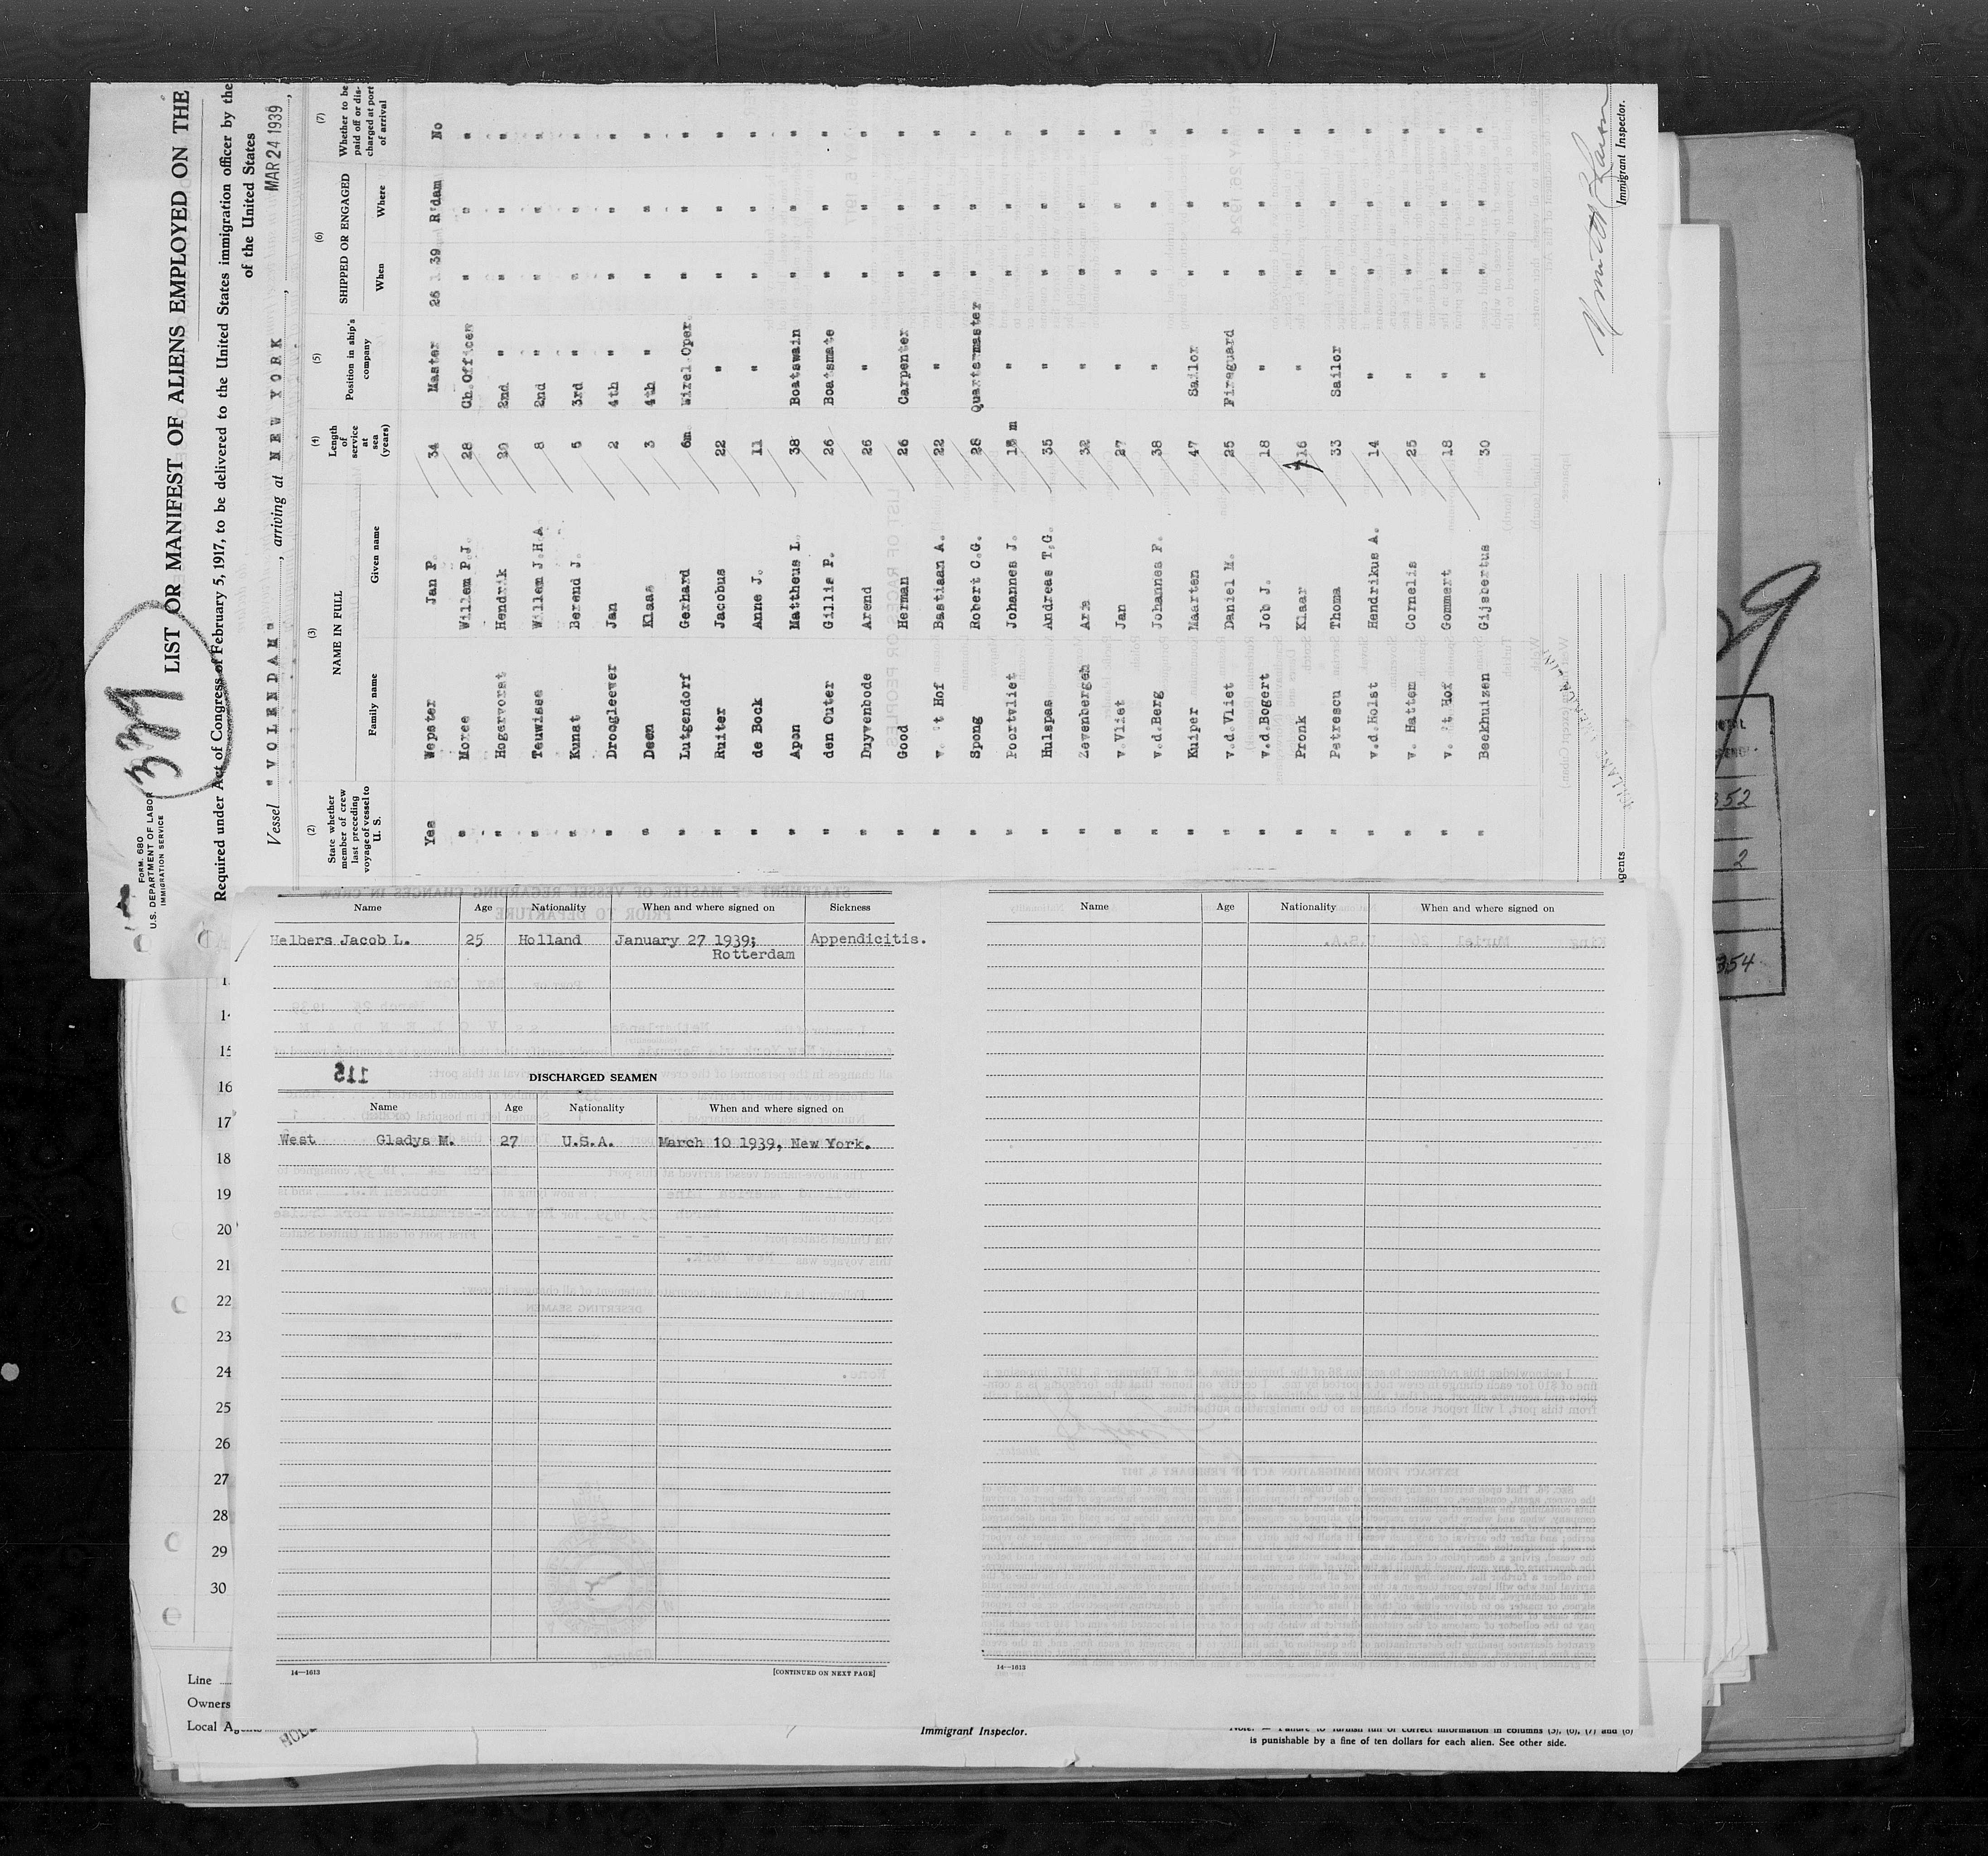 FORM 680
U.S. DEPARTMENT OF LABOR
IMMIGRATION SERVICE
LIST OR MANIFEST OF ALIENS EMPLOYED ON THE
Required under Act of Congress of February 5, 1917, to be delivered to the United States immigration officer by the
of the United States
Vessel "VOLENDAM", arriving at NEW YORK, MAR 24 1939,
(2) State whether member of crew last preceding voyage of vessel to U. S.
(3) NAME IN FULL
Family name Given name
(4) Length of service at sea (years)
(5) Position in ship's company
(6) SHIPPED OR ENGAGED
When Where
(7) Whether to be paid off or discharged at port of arrival
Yes Wepster Jan P. 34 Master 26 1 39 R'dam No
" Moree Willem P.J. 28 Ch.Officer " " "
" Hogervorst Hendrik 20 2nd " " " "
" Teuwisse Willem J.H.A. 8 2nd " " " "
" Kunst Berend J. 5 3rd " " " "
" Droogleever Jan 2 4th " " " "
" Deen Klaas 3 4th " " " "
" Lutgendorf Gerhard 6m Wirel.Oper. " " "
" Ruiter Jacobus 22 " " " "
" de Bock Anne J. 11 " " " "
" Apon Mattheus L. 38 Boatswain " " "
" den Outer Gillis P. 26 Boatsmate " " "
" Duyvenbode Arend 26 " " " "
" Good Herman 26 Carpenter " " "
" v. 't Hof Bastiaan A. 22 " " " "
" Spong Robert C.G. 28 Quartermaster " " "
" Poortvliet Johannes J. m " " " "
" Hulspas Andreas T.G. 35 " " " "
" Zevenbergen Arie 32 " " " "
" v.Vliet Jan 27 " " " "
" v.d.Berg Johannes F. 38 " " " "
" Kuiper Maarten 47 Sailor " " "
" v.d.Vliet Daniel M. 25 Fireguard " " "
" v.d.Bogert Job J. 18 " " " "
" Pronk Klaar 16 " " " "
" Petrescu Thoma 33 Sailor " " "
" v.d.Holst Hendrikus A. 14 " " " "
" v. Hattem Cornelis 25 " " " "
" v. 't Hof Gommert 18 " " " "
" Beekhuizen Gijsbertus 30 " " " "
Immigrant Inspector.
gents
Name Age Nationality When and where signed on Sickness
Helbers Jacob L. 25 Holland January 27 1939; Appendicitis.
Rotterdam
DISCHARGED SEAMEN
Name Age Nationality When and where signed on
West Gladys M. 27 U.S.A. March 10 1939, New York.
14—1613
[CONTINUED ON NEXT PAGE]
Name Age Nationality When and where signed on
14—1613
15
16
17
18
19
20
21
22
23
24
25
26
27
28
29
30
352
2
354
Line
Owners
Local Ag
Immigrant Inspector.
Note. — Failure to furnish full or correct information in columns (3), (6), (7) and (8)
is punishable by a fine of ten dollars for each alien. See other side.